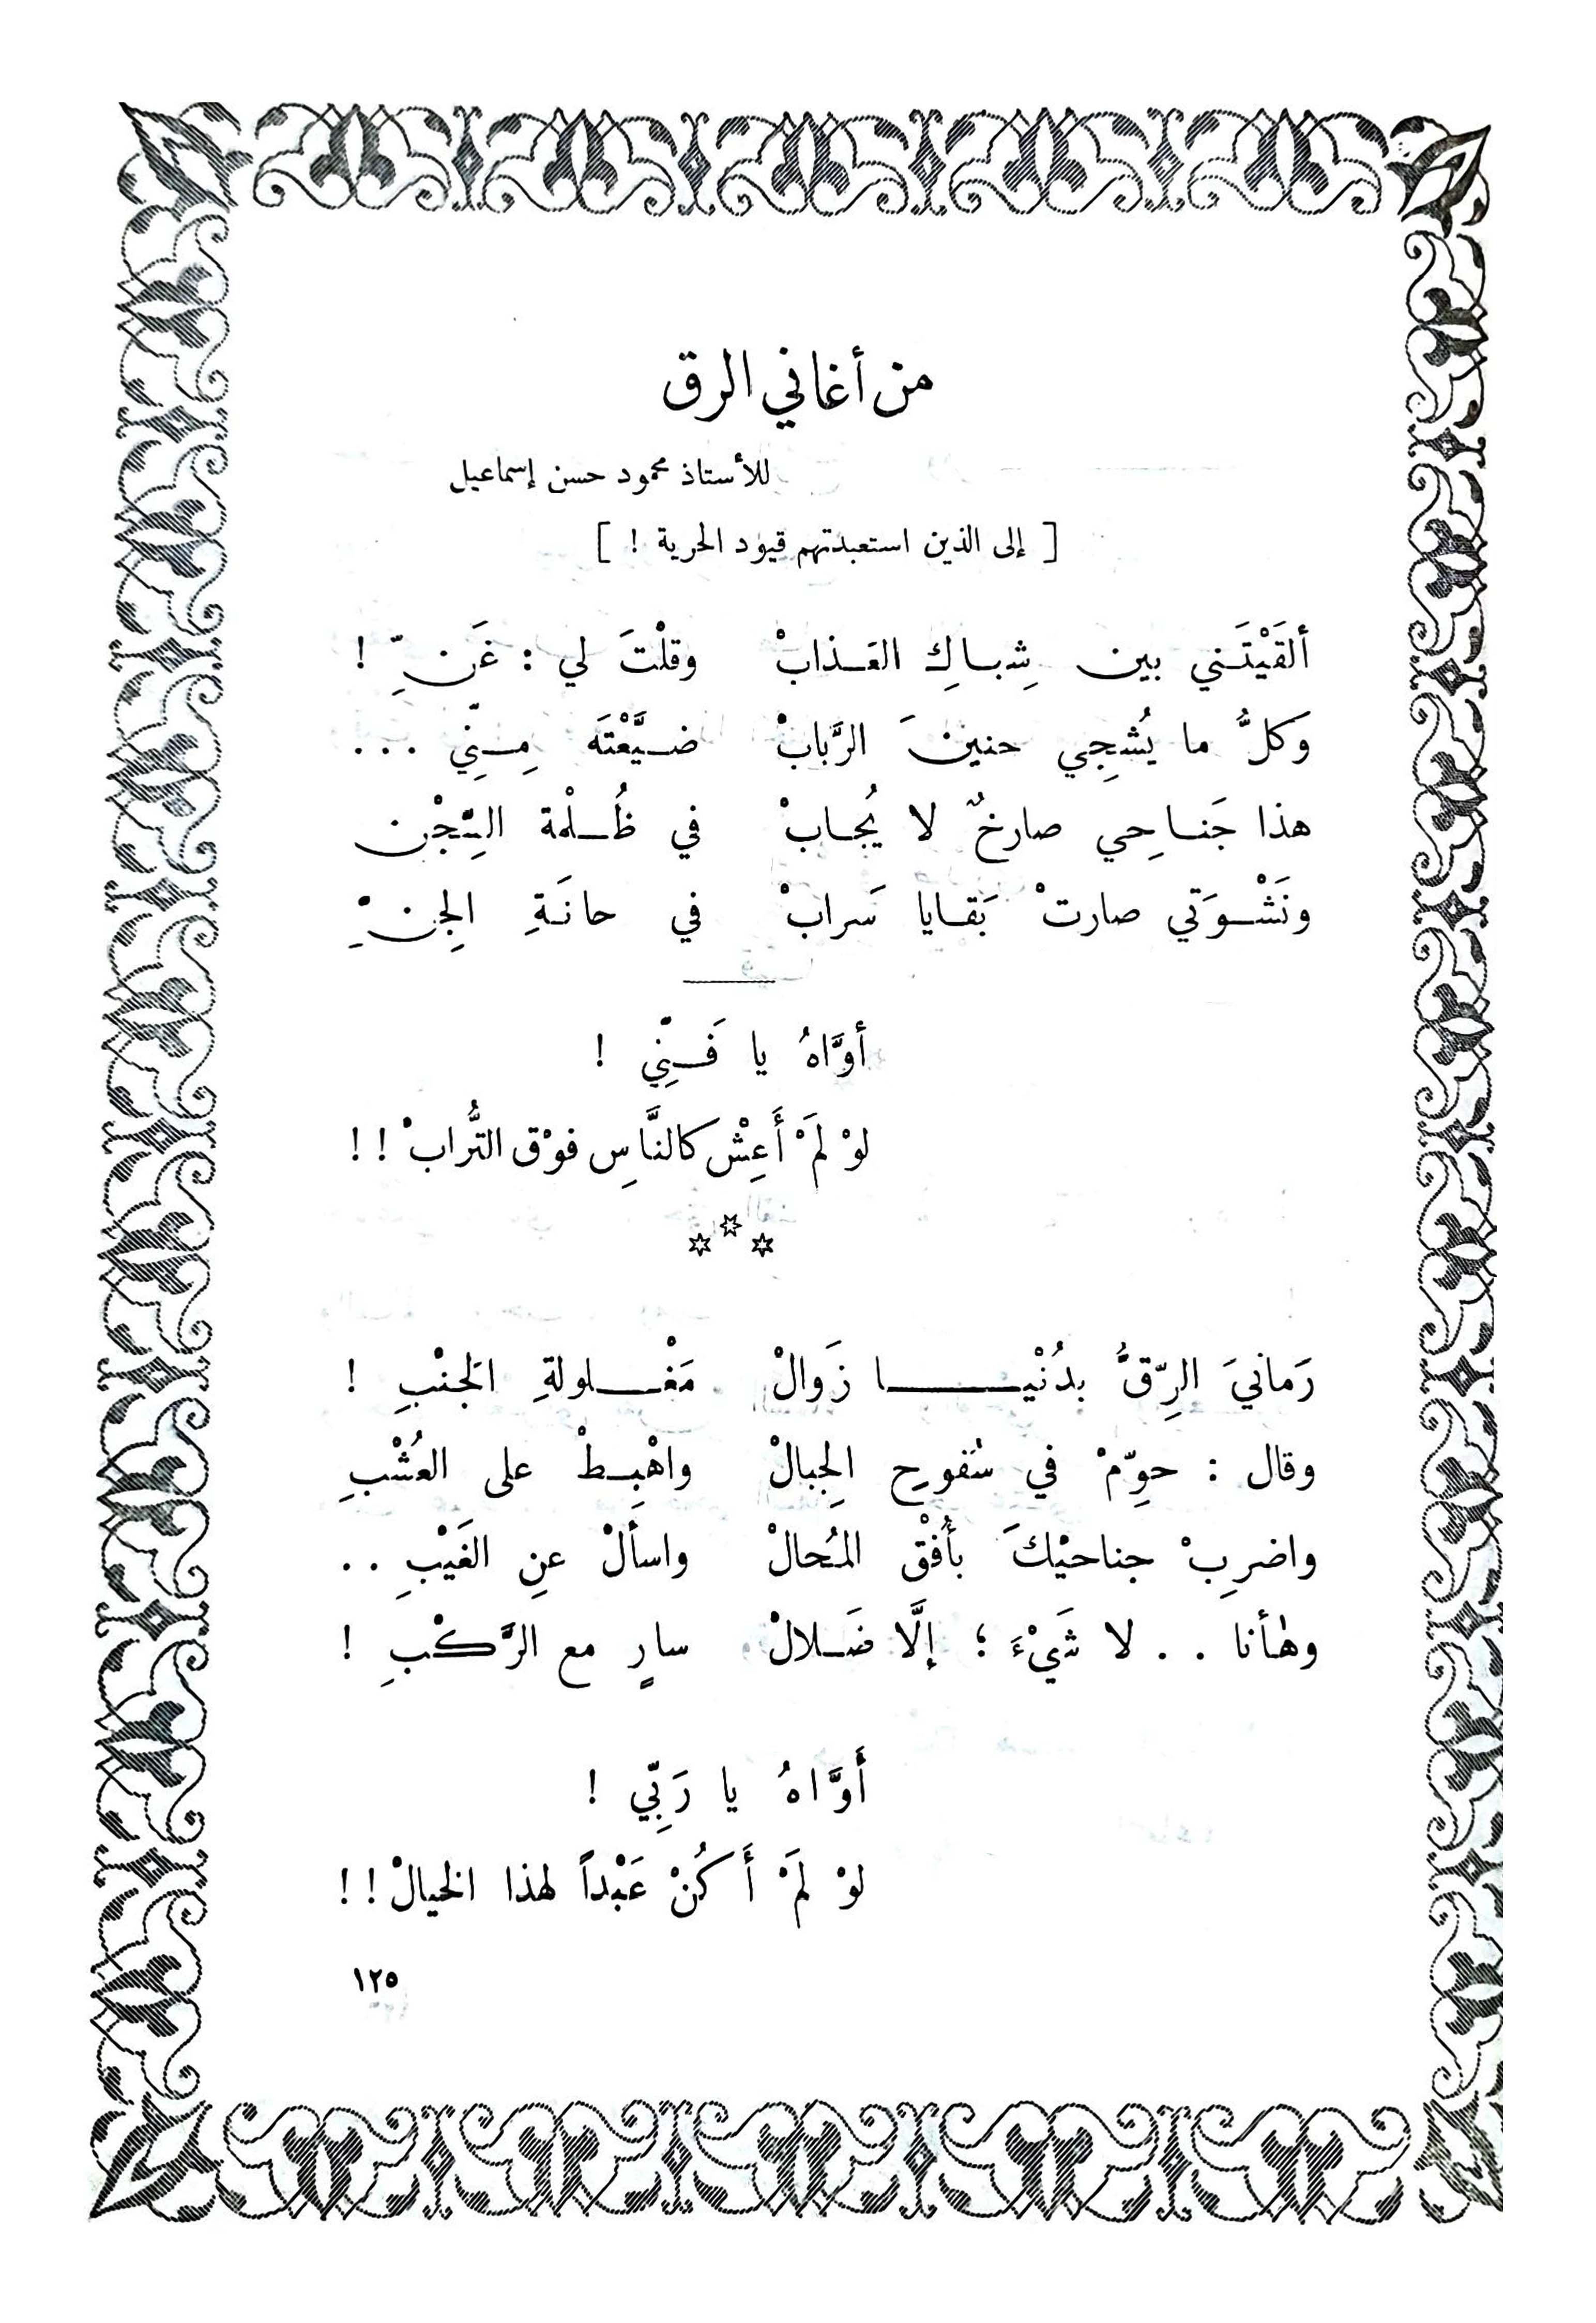 من أغاني الرق
للأستاذ محمود حسن إسماعيل
[ إلى الذين استعبدتهم قيود الحرية ! ]
ألقَيْتَـني بين شِبـاكِ العَـذابْ وقلْتَ لي : غَـنِّ !
وَكلُّ ما يُشجِي حنينَ الرَّبابْ ضـيَّعْتَه مِـنِّي ...
هذا جَنـاحِي صارخٌ لا يُجـابْ في ظُـلْمة السِّجْن
ونَشْـوَتي صارتْ بَقـايا سَرابْ في حانَـةِ الجِنْـِ
أوَّاهُ يا فَـنِّي !
لوْ لَمْ أَعِشْ كالنَّاسِ فوْق التُّرابْ !!
رَمانيَ الرِّقُّ بدُنْيـــا زَوالْ مَغْـلولةِ الجَنْبِ !
وقال : حوِّمْ في سُفوحِ الجِبالْ واهْبِـطْ على العُشْبِ
واضربِْ جناحيْكَ بأُفْق المُحالْ واسألْ عنِ الغَيْبِ ..
وهأنا .. لا شَيْءَ ؛ إلَّا ضَـلالْ سارٍ مع الرَّكْبِ !
أَوَّاهُ يا رَبِّي !
لوْ لَمْ أَكُنْ عَبْداً لهذا الخيالْ !!
١٢٥